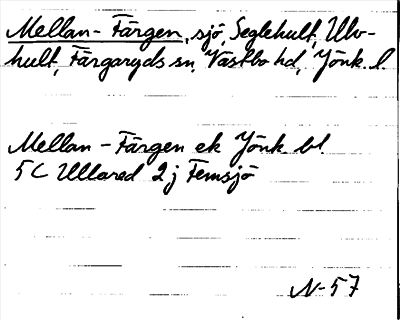 Mellan-Färgen, sjö, Seglehult, Ulv-
hult, Färgaryds sn, Västbo hd, Jönk. l.
Mellan-Färgen ek Jönk bl
5C Ullared 2j Femsjö
N-57